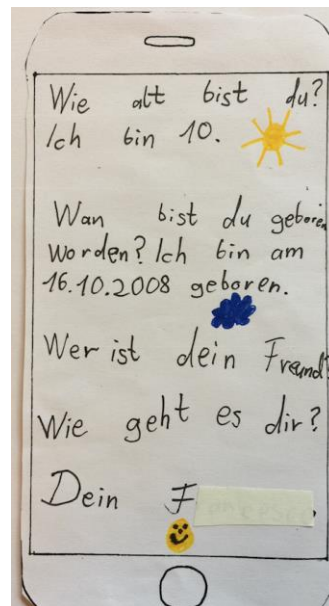 Wie alt bist du?
Ich bin 10.
Wan bist du geboren
worden? Ich bin am
16.10.2008 geboren.
Wer ist dein Freund?
Wie geht es dir?
Dein F